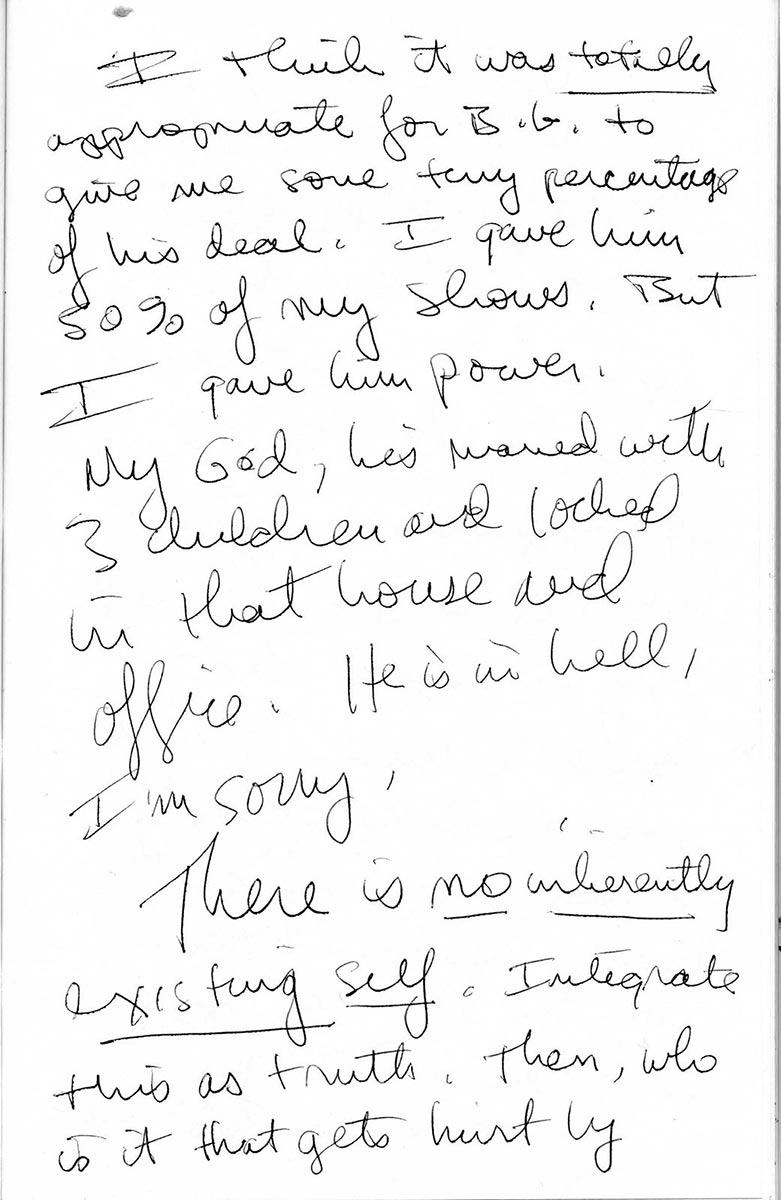 I think it was totally
appropriate for B.G. to
give me some tiny percentage
of his deal. I gave him
50% of my shows. But
I gave him power.
My God, he's married with
3 children and locked
in that house and
office. He is in hell,
I'm sorry,
There is no inherently
existing self. Integrate
this as truth. Then, who
is it that gets hurt by